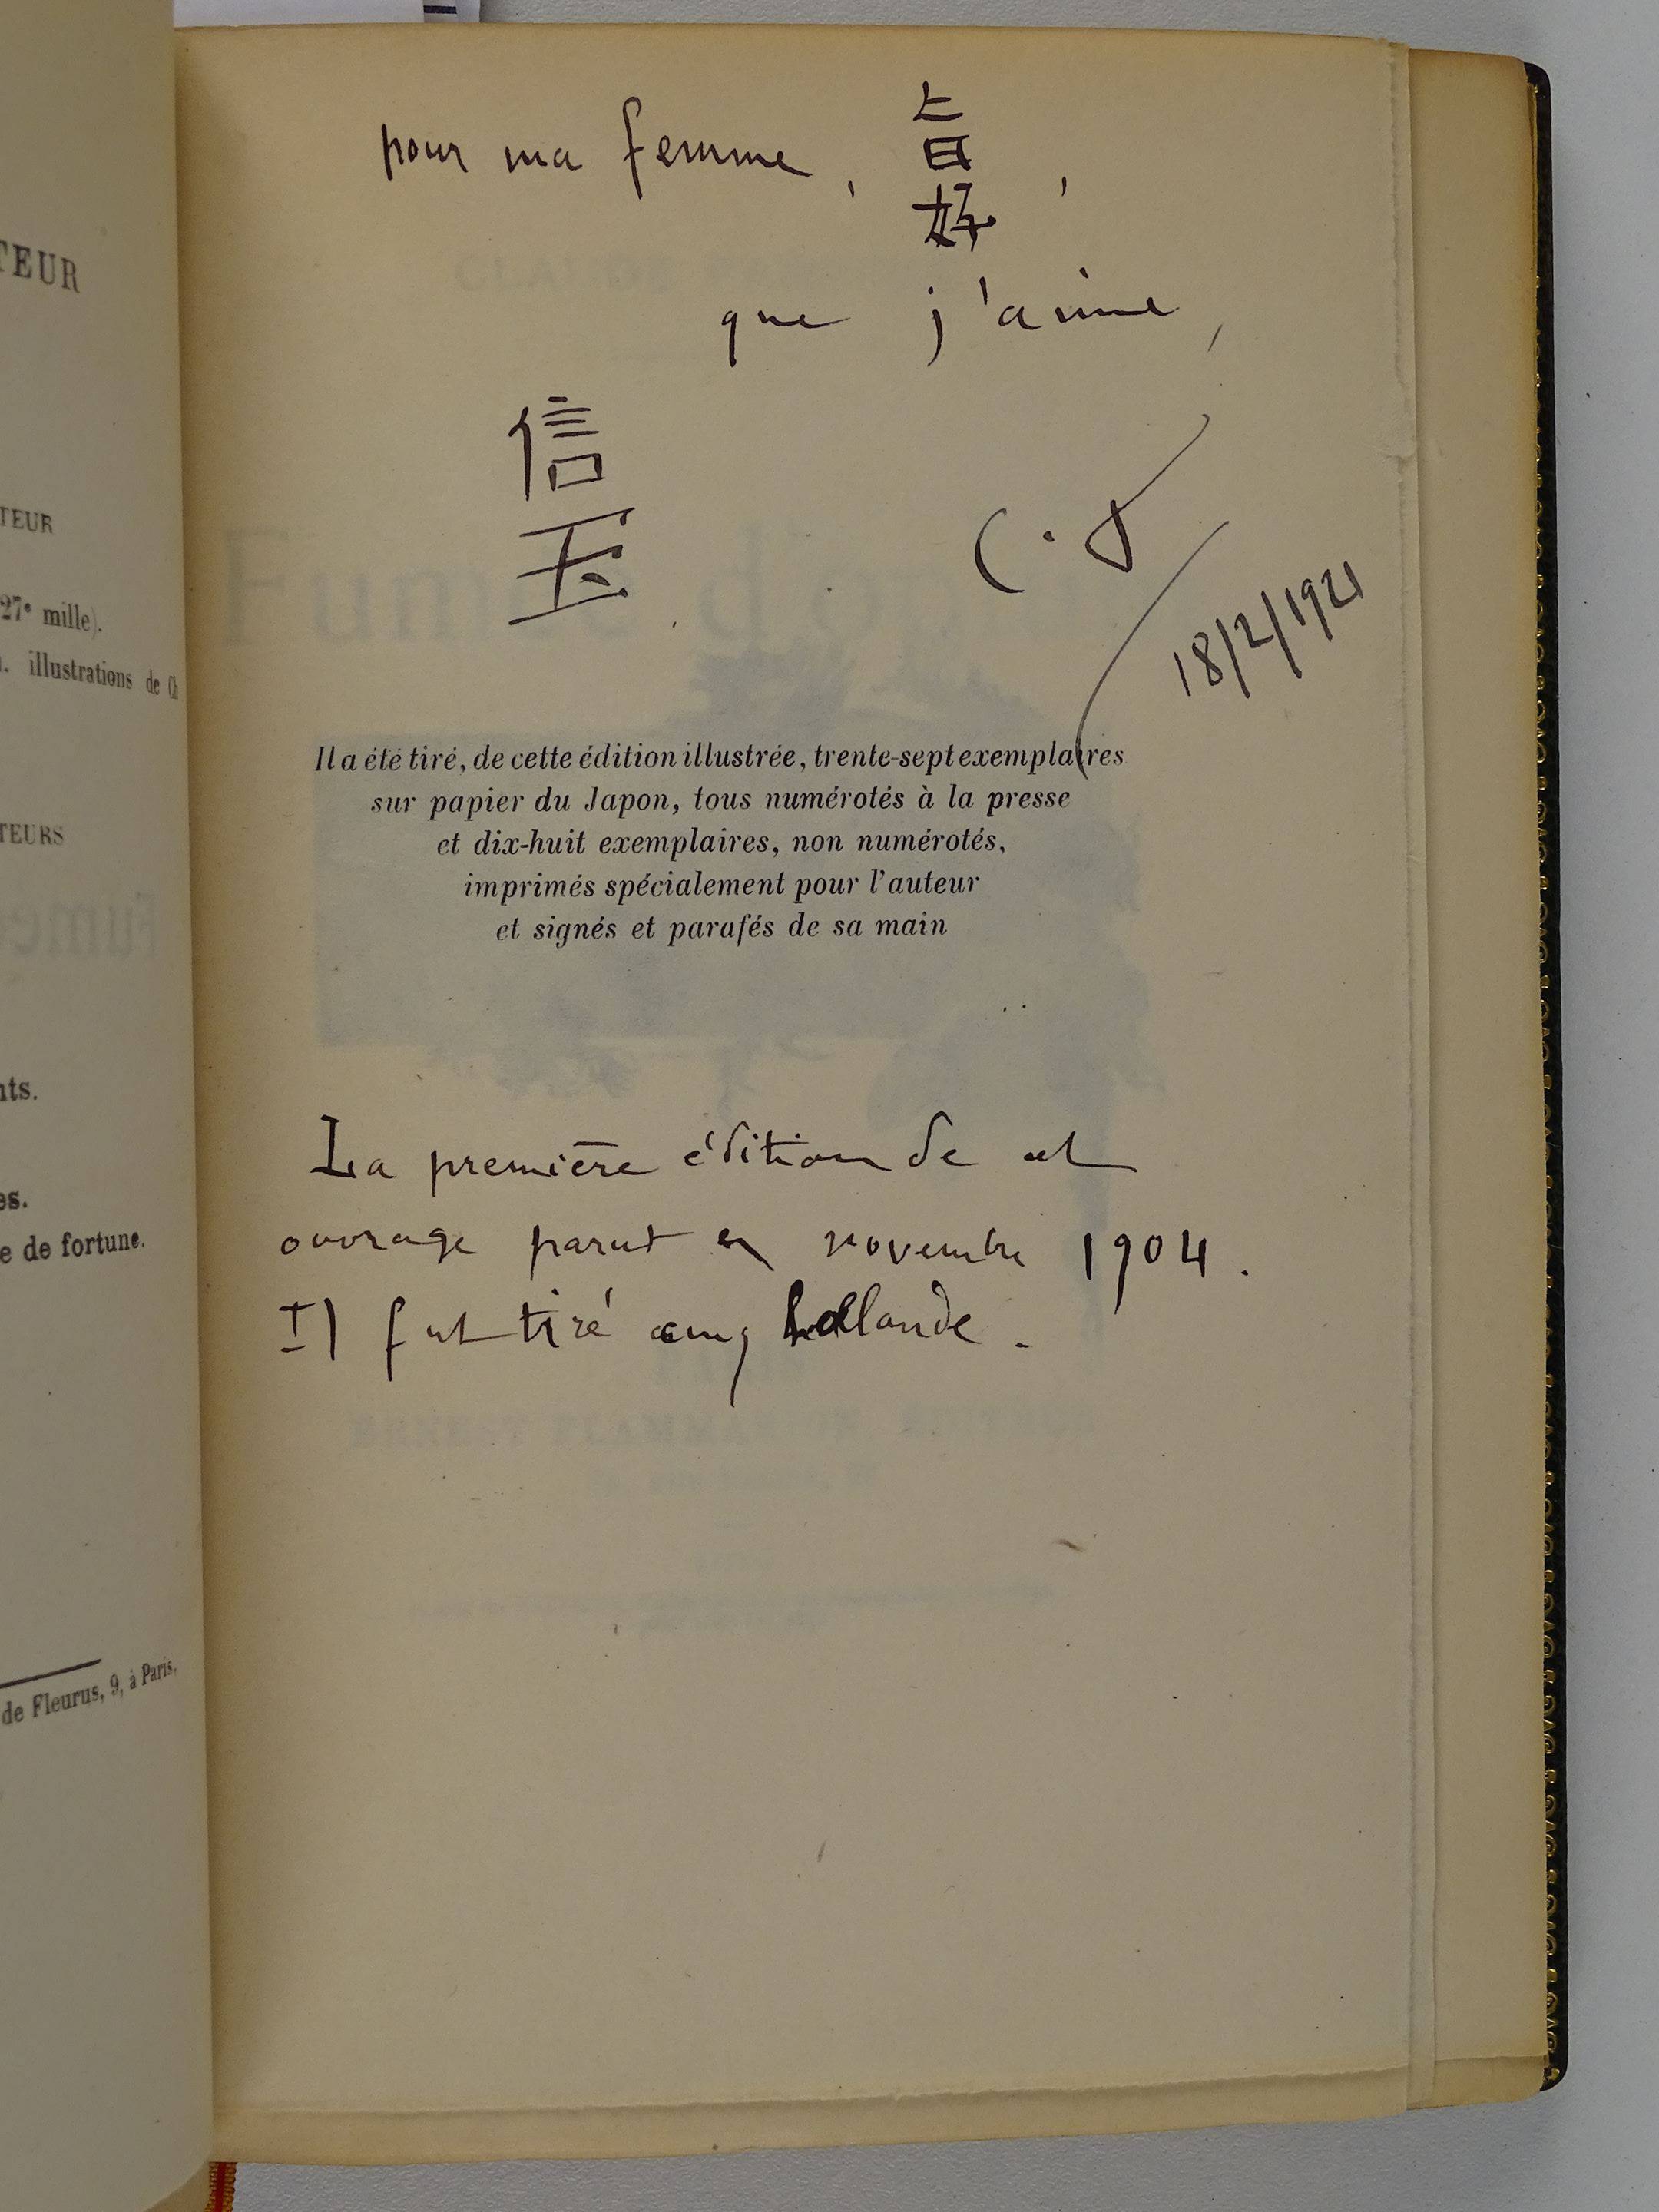 TEUR
TEUR
27e mille).
. illustrations de Ch
TEURS
nts.
es.
e de fortune.
de Fleurus, 9, à Paris.
pour ma femme, 好,
que j'aime,
信
玉
C. F
18/2/1921
Il a été tiré, de cette édition illustrée, trente-sept exemplaires
sur papier du Japon, tous numérotés à la presse
et dix-huit exemplaires, non numérotés,
imprimés spécialement pour l'auteur
et signés et parafés de sa main
La première édition de cet
ouvrage parut en novembre 1904.
Il fut tiré cinq hollande.